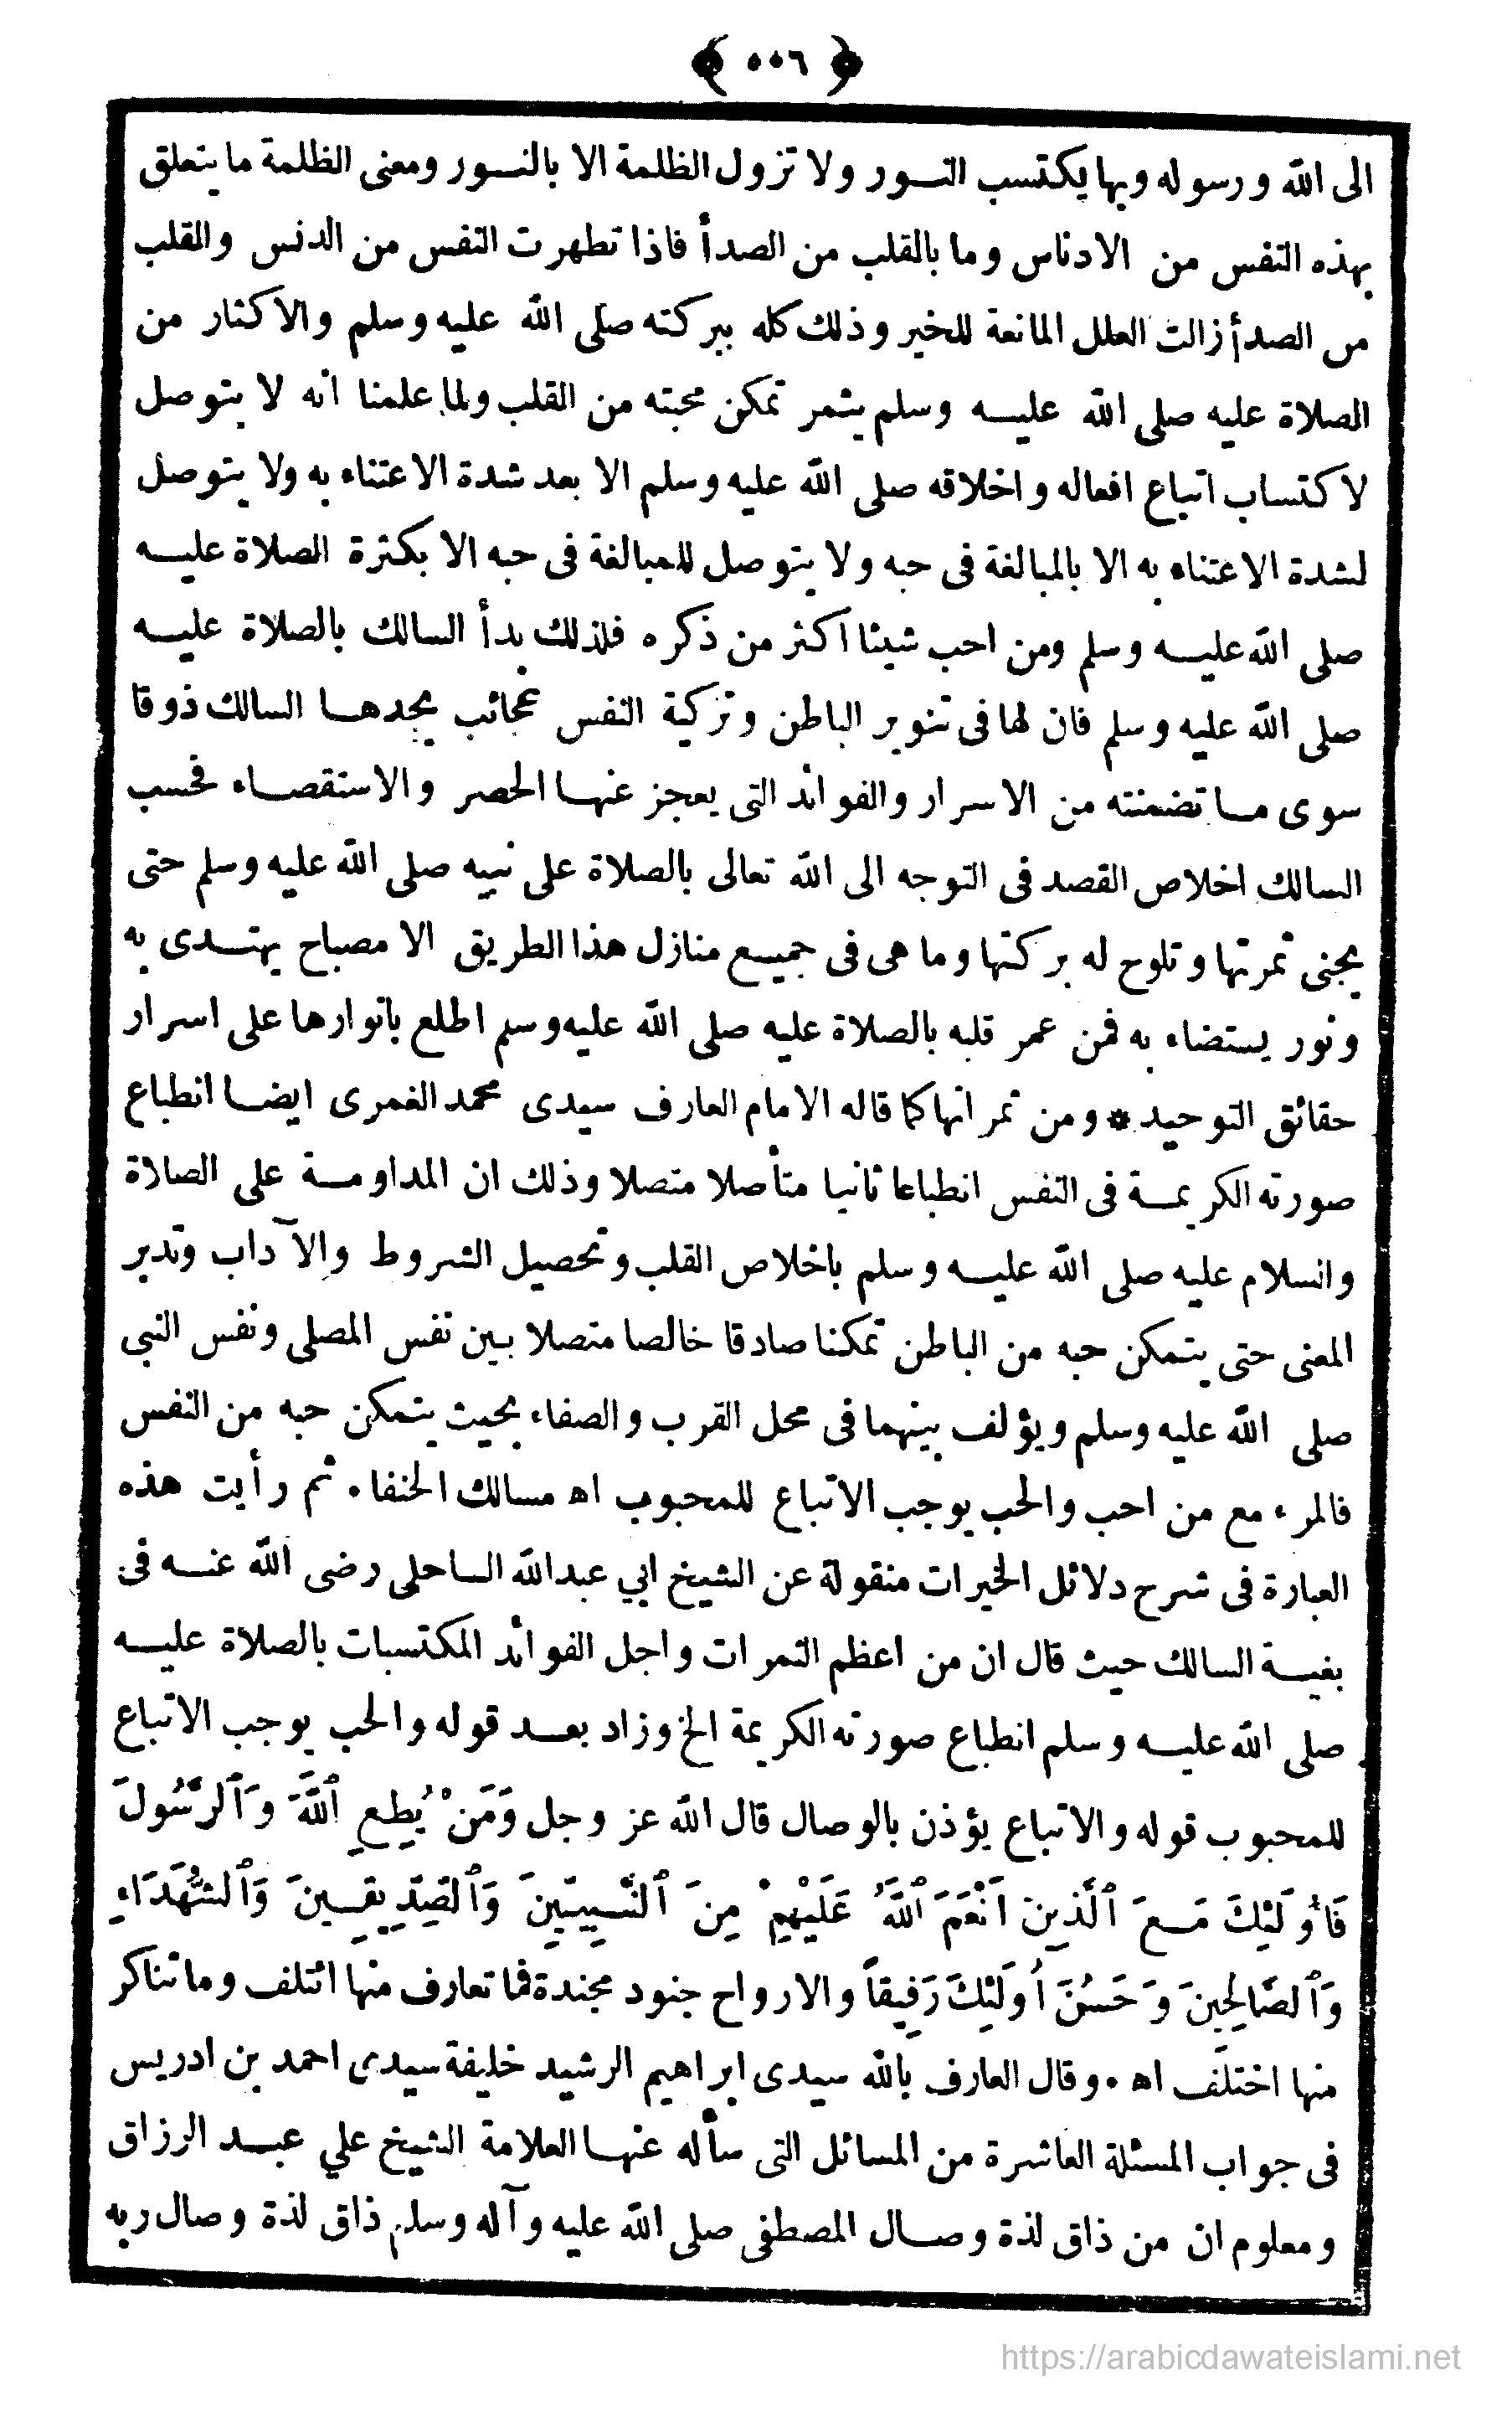 ﴿ ٥٥٦ ﴾
الى الله ورسوله وبها يكتسب النور ولا تزول الظلمة الا بالنور ومعنى الظلمة ما يتعلق
بهذه النفس من الادناس وما بالقلب من الصدأ فاذا تطهرت النفس من الدنس والقلب
من الصدأ زالت العلل المانعة للخير وذلك كله ببركته صلى الله عليه وسلم والاكثار من
الصلاة عليه صلى الله عليه وسلم يثمر تمكن محبته من القلب ولما علمنا انه لا يتوصل
لاكتساب اتباع افعاله واخلاقه صلى الله عليه وسلم الا بعد شدة الاعتناء به ولا يتوصل
لشدة الاعتناء به الا بالمبالغة فى حبه ولا يتوصل للمبالغة فى حبه الا بكثرة الصلاة عليه
صلى الله عليه وسلم ومن احب شيئا اكثر من ذكره فلذلك بدأ السالك بالصلاة عليه
صلى الله عليه وسلم فان لها فى تنوير الباطن وتزكية النفس عجائب يجدها السالك ذوقا
سوى ما تضمنته من الاسرار والفوائد التى يعجز عنها الحصر والاستقصاء فحسب
السالك اخلاص القصد فى التوجه الى الله تعالى بالصلاة على نبيه صلى الله عليه وسلم حتى
يجنى ثمرتها وتلوح له بركتها وما هى فى جميع منازل هذا الطريق الا مصباح يهتدى به
ونور يستضاء به فمن عمر قلبه بالصلاة عليه صلى الله عليه وسلم اطلع بانوارها على اسرار
حقائق التوحيد * ومن ثمراتها كما قاله الامام العارف سيدى محمد الغمرى ايضا انطباع
صورته الكريمة فى النفس انطباعا ثانيا متأصلا متصلا وذلك ان المداومة على الصلاة
والسلام عليه صلى الله عليه وسلم باخلاص القلب وتحصيل الشروط والآداب وتدبر
المعنى حتى يتمكن حبه من الباطن تمكنا صادقا خالصا متصلا بين نفس المصلى ونفس النبى
صلى الله عليه وسلم ويؤلف بينهما فى محل القرب والصفاء بحيث يتمكن حبه من النفس
فالمرء مع من احب والحب يوجب الاتباع للمحبوب اه مسالك الحنفاء. ثم رأيت هذه
العبارة فى شرح دلائل الخيرات منقولة عن الشيخ ابي عبد الله الساحلى رضى الله عنه فى
بغية السالك حيث قال ان من اعظم الثمرات واجل الفوائد المكتسبات بالصلاة عليه
صلى الله عليه وسلم انطباع صورته الكريمة الخ وزاد بعد قوله والحب يوجب الاتباع
للمحبوب قوله والاتباع يؤذن بالوصال قال الله عز وجل وَمَنْ يُطِعِ ٱللَّهَ وَٱلرَّسُولَ
فَأُولَئِكَ مَعَ ٱلَّذِينَ اَنْعَمَ ٱللَّهُ عَلَيْهِمْ مِنَ ٱلنَّبِيِّينَ وَٱلصِّدِّيقِينَ وَٱلشُّهَدَاءِ
وَٱلصَّالِحِينَ وَحَسُنَ اُولَئِكَ رَفِيقاً والارواح جنود مجندة فما تعارف منها ائتلف وما تناكر
منها اختلف اه. وقال العارف بالله سيدى ابراهيم الرشيد خليفة سيدى احمد بن ادريس
فى جواب المسئلة العاشرة من المسائل التى سأله عنها العلامة الشيخ علي عبد الرزاق
ومعلوم ان من ذاق لذة وصال المصطفى صلى الله عليه وآله وسلم ذاق لذة وصال ربه
https://arabicdawateislami.net